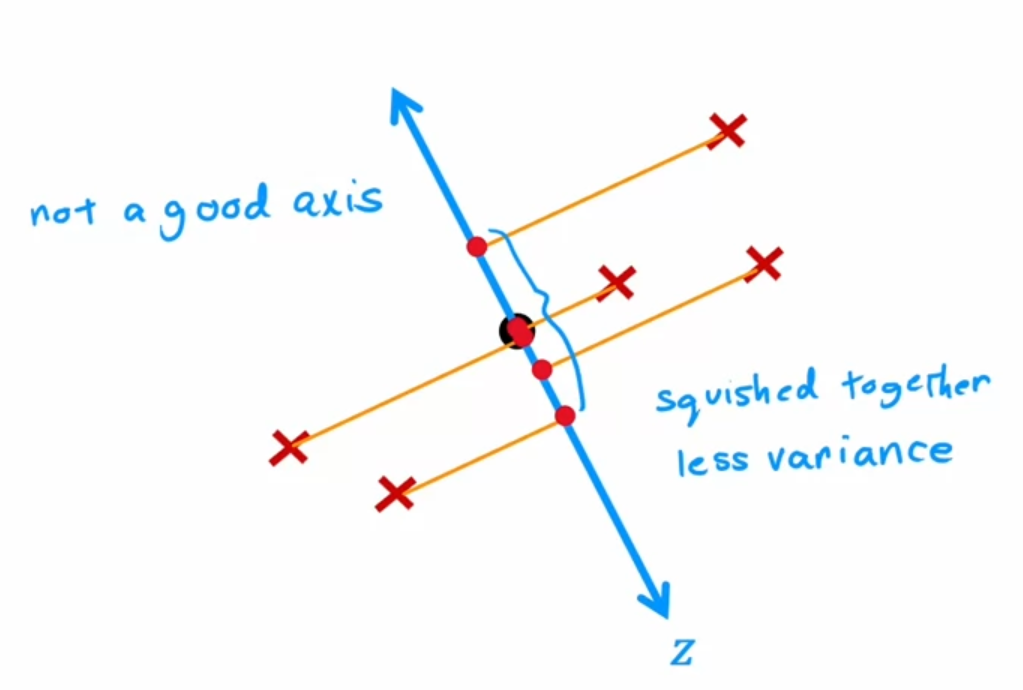 not a good axis
squished together
less variance
z